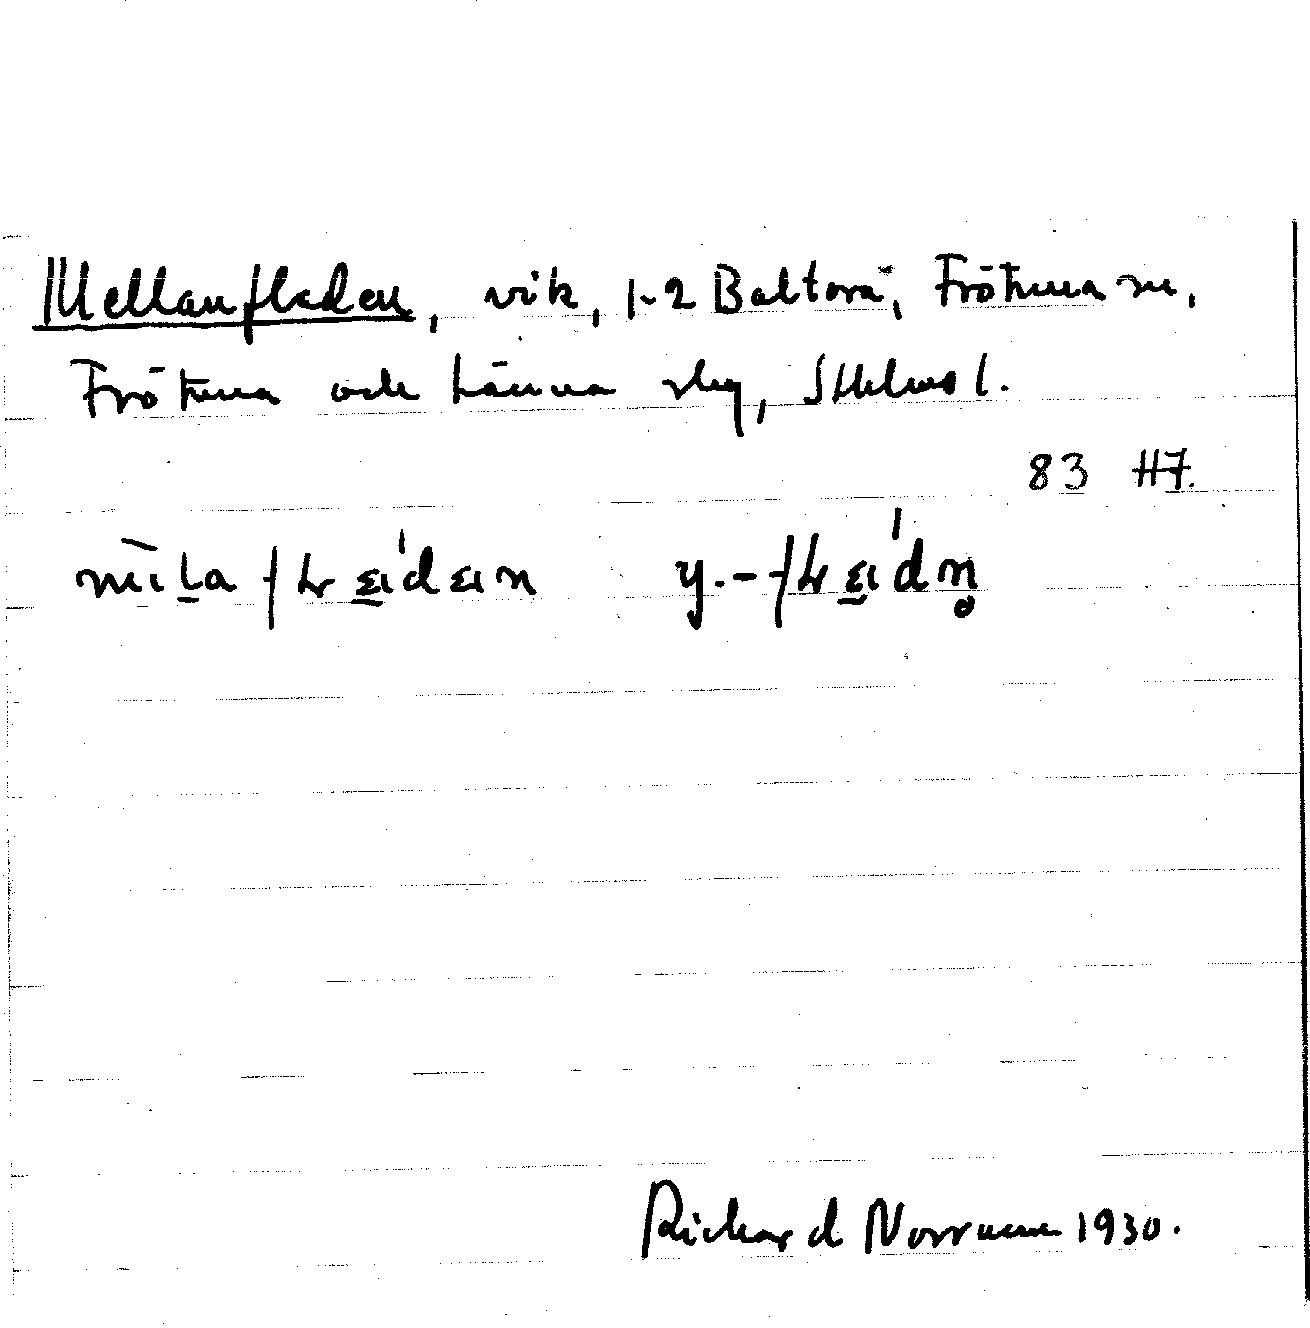 Mellanfladen, vik, 1-2 Baltora, Frötuna sn,
Frötuna och Länna slg, Sthlms l.
83 117.
y.-
Richard Norrman 1930.